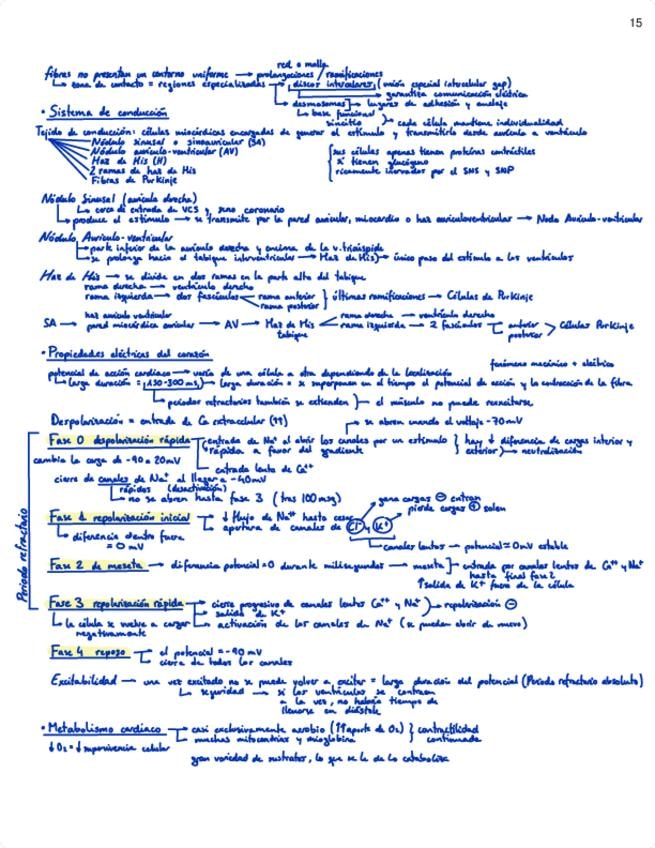 15
red o malla
fibras no presentan un contorno uniforme → prolongaciones / ramificaciones
↳ zona de contacto = regiones especializadas → discos intercalares (unión especial intercelular gap)
↳ garantiza comunicación eléctrica
↳ desmosomas → lugares de adhesión y anclaje
↳ base funcional sincitio → cada célula mantiene individualidad
• Sistema de conducción
Tejido de conducción: células miocárdicas encargadas de generar el estímulo y transmitirlo desde aurícula a ventrículo
Nódulo sinusal o sinoauricular (SA)
Nódulo aurículo-ventricular (AV)
Haz de His (H)
2 ramas de haz de His
Fibras de Purkinje
sus células apenas tienen proteínas contráctiles
x tienen glucógeno
ricamente inervados por el SNS y SNP
Nódulo Sinusal (aurícula derecha)
↳ cerca de entrada de VCS y seno coronario
↳ produce el estímulo → se transmite por la pared auricular, miocardio o haz auriculoventricular → Nodo Aurículo-ventricular
Nódulo Aurículo-ventricular
↳ parte inferior de la aurícula derecha y encima de la v. tricúspide
↳ se prolonga hacia el tabique interventricular → Haz de His → único paso del estímulo a los ventrículos
Haz de His → se divide en dos ramas en la parte alta del tabique
rama derecha → ventrículo derecho
rama izquierda → dos fascículos < rama anterior
rama posterior } últimas ramificaciones → Células de Purkinje
haz aurículo ventricular
SA → pared miocárdica auricular → AV → Haz de His < rama derecha → ventrículo derecho
tabique rama izquierda → 2 fascículos < anterior
posterior > Células Purkinje
• Propiedades eléctricas del corazón
fenómeno mecánico + eléctrico
potencial de acción cardiaco → varía de una célula a otra dependiendo de la localización
↳ larga duración = (150-300 ms) → larga duración = se superponen en el tiempo el potencial de acción y la contracción de la fibra
↳ periodos refractarios también se extienden → el músculo no puede reexcitarse
Despolarización = entrada de Ca extracelular (↑↑)
→ se abren cuando el voltaje -70mV
Fase 0 despolarización rápida → entrada de Na⁺ al abrir los canales por un estímulo } hay ↓ diferencia de cargas interior y
rápida a favor del gradiente exterior → neutralización
cambia la carga de -90 a 20mV
entrada lenta de Ca²⁺
cierre de canales de Na⁺ al llegar a -40mV
rápidos (desactivación)
↳ no se abren hasta fase 3 (tras 100 msg)
gana cargas ⊖ entran
pierde cargas ⊕ salen
Fase 1 repolarización inicial → ↓ flujo de Na⁺ hasta cesar
↳ apertura de canales de Cl⁻ y K⁺
↳ diferencia dentro fuera
= 0 mV
canales lentos → potencial = 0mV estable
Fase 2 de meseta → diferencia potencial=0 durante milisegundos → meseta → entrada por canales lentos de Ca²⁺ y Na⁺
hasta final fase 2
↑ salida de K⁺ fuera de la célula
Periodo refractario
Fase 3 repolarización rápida → cierre progresivo de canales lentos Ca²⁺ y Na⁺ → repolarización ⊖
salida de K⁺
↳ la célula se vuelve a cargar
negativamente
activación de los canales de Na⁺ (se pueden abrir de nuevo)
Fase 4 reposo → el potencial = -90 mV
cierre de todos los canales
Excitabilidad → una vez excitado no se puede volver a excitar = larga duración del potencial (Periodo refractario absoluto)
↳ seguridad → si los ventrículos se contraen
a la vez, no habría tiempo de
llenarse en diástole
• Metabolismo cardiaco → casi exclusivamente aerobio (↑↑ aporte de O₂) } contractilidad
muchas mitocondrias y mioglobina continuada
↓O₂ = ↓ supervivencia celular
gran variedad de sustratos, lo que se le da lo cataboliza